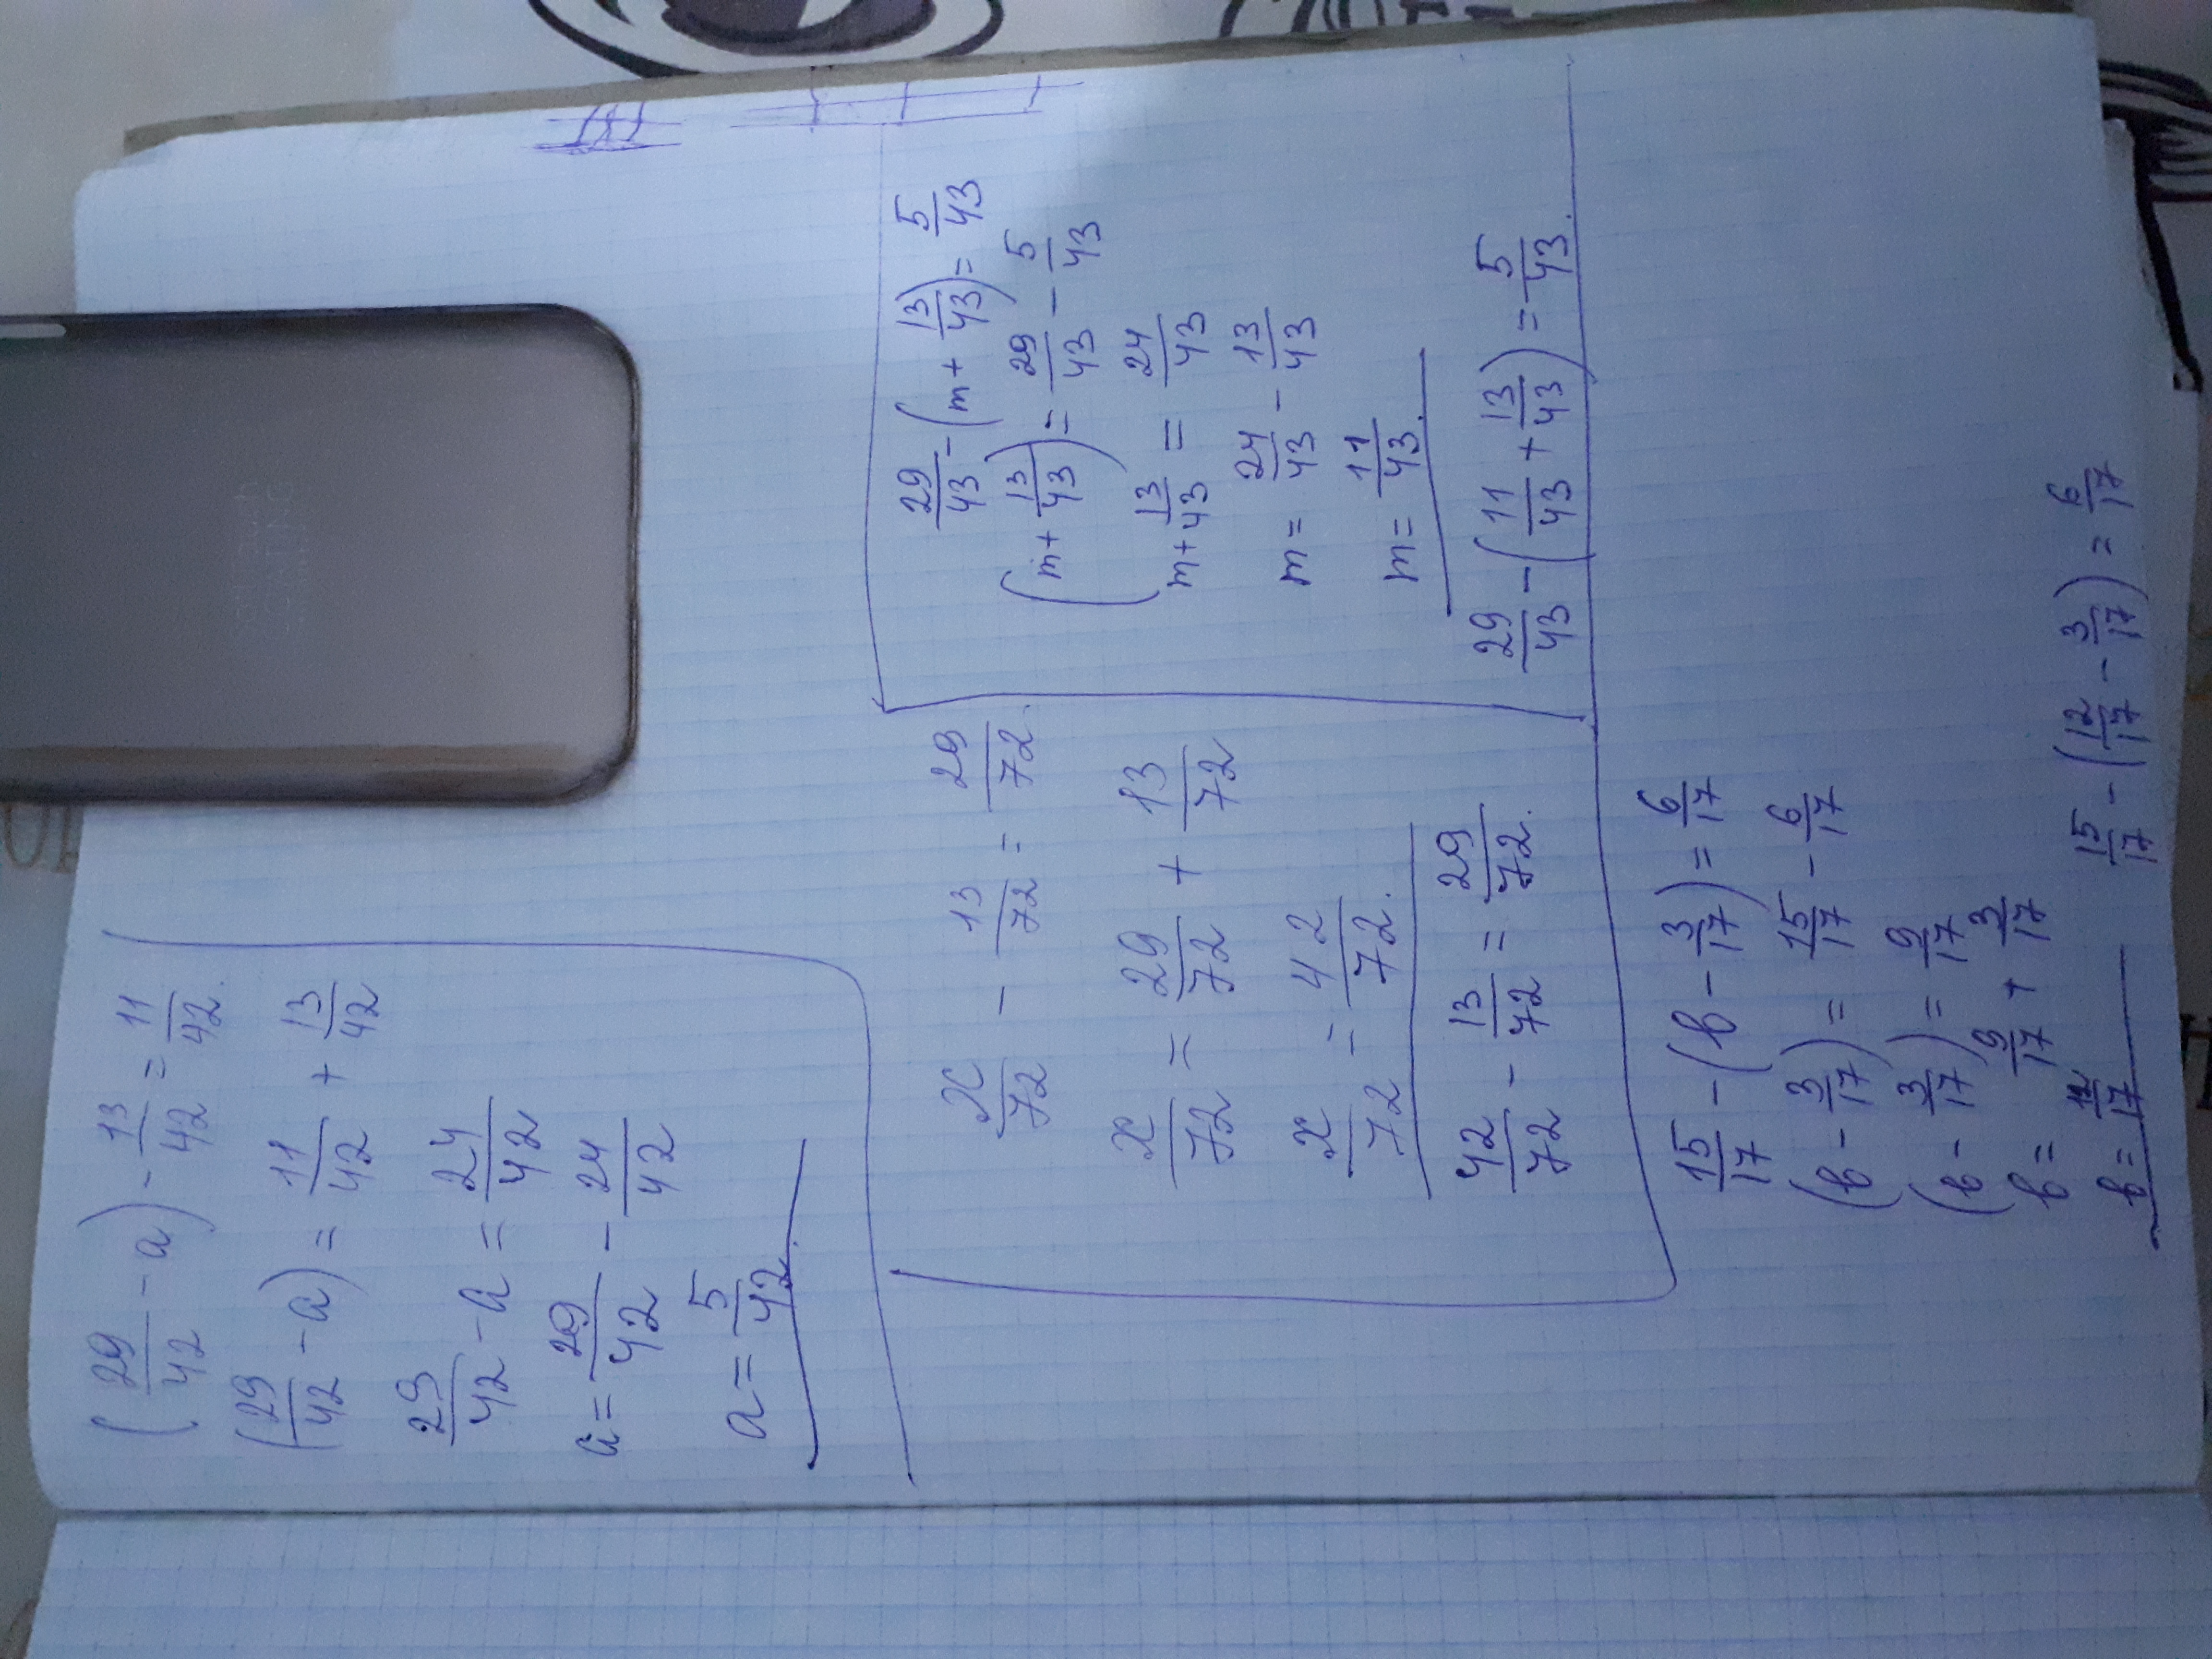 (29/42 - a) - 13/42 = 11/42.
(29/42 - a) = 11/42 + 13/42
29/42 - a = 24/42
a = 29/42 - 24/42
a = 5/42.
x/72 - 13/72 = 29/72.
x/72 = 29/72 + 13/72
x/72 = 42/72.
42/72 - 13/72 = 29/72.
29/43 - (m + 13/43) = 5/43
(m + 13/43) = 29/43 - 5/43
m + 13/43 = 24/43
m = 24/43 - 13/43
m = 11/43.
29/43 - (11/43 + 13/43) = 5/43.
15/17 - (b - 3/17) = 6/17
(b - 3/17) = 15/17 - 6/17
(b - 3/17) = 9/17
b = 9/17 + 3/17
b = 12/17
15/17 - (12/17 - 3/17) = 6/17